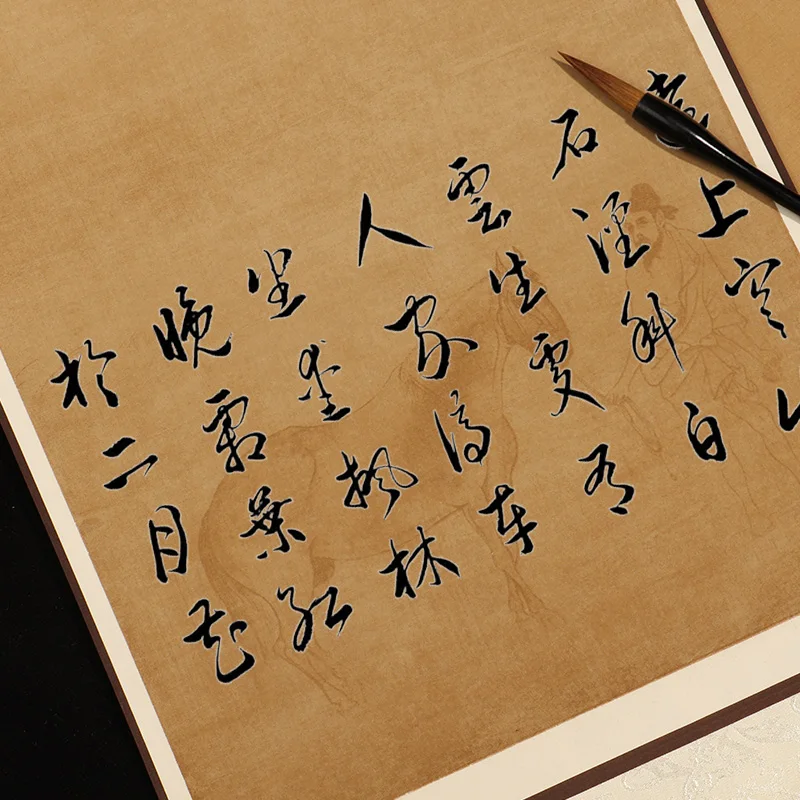 遠上寒
石徑斜白
雲生處有
人家停車
坐愛楓林
晚霜葉紅
於二月花